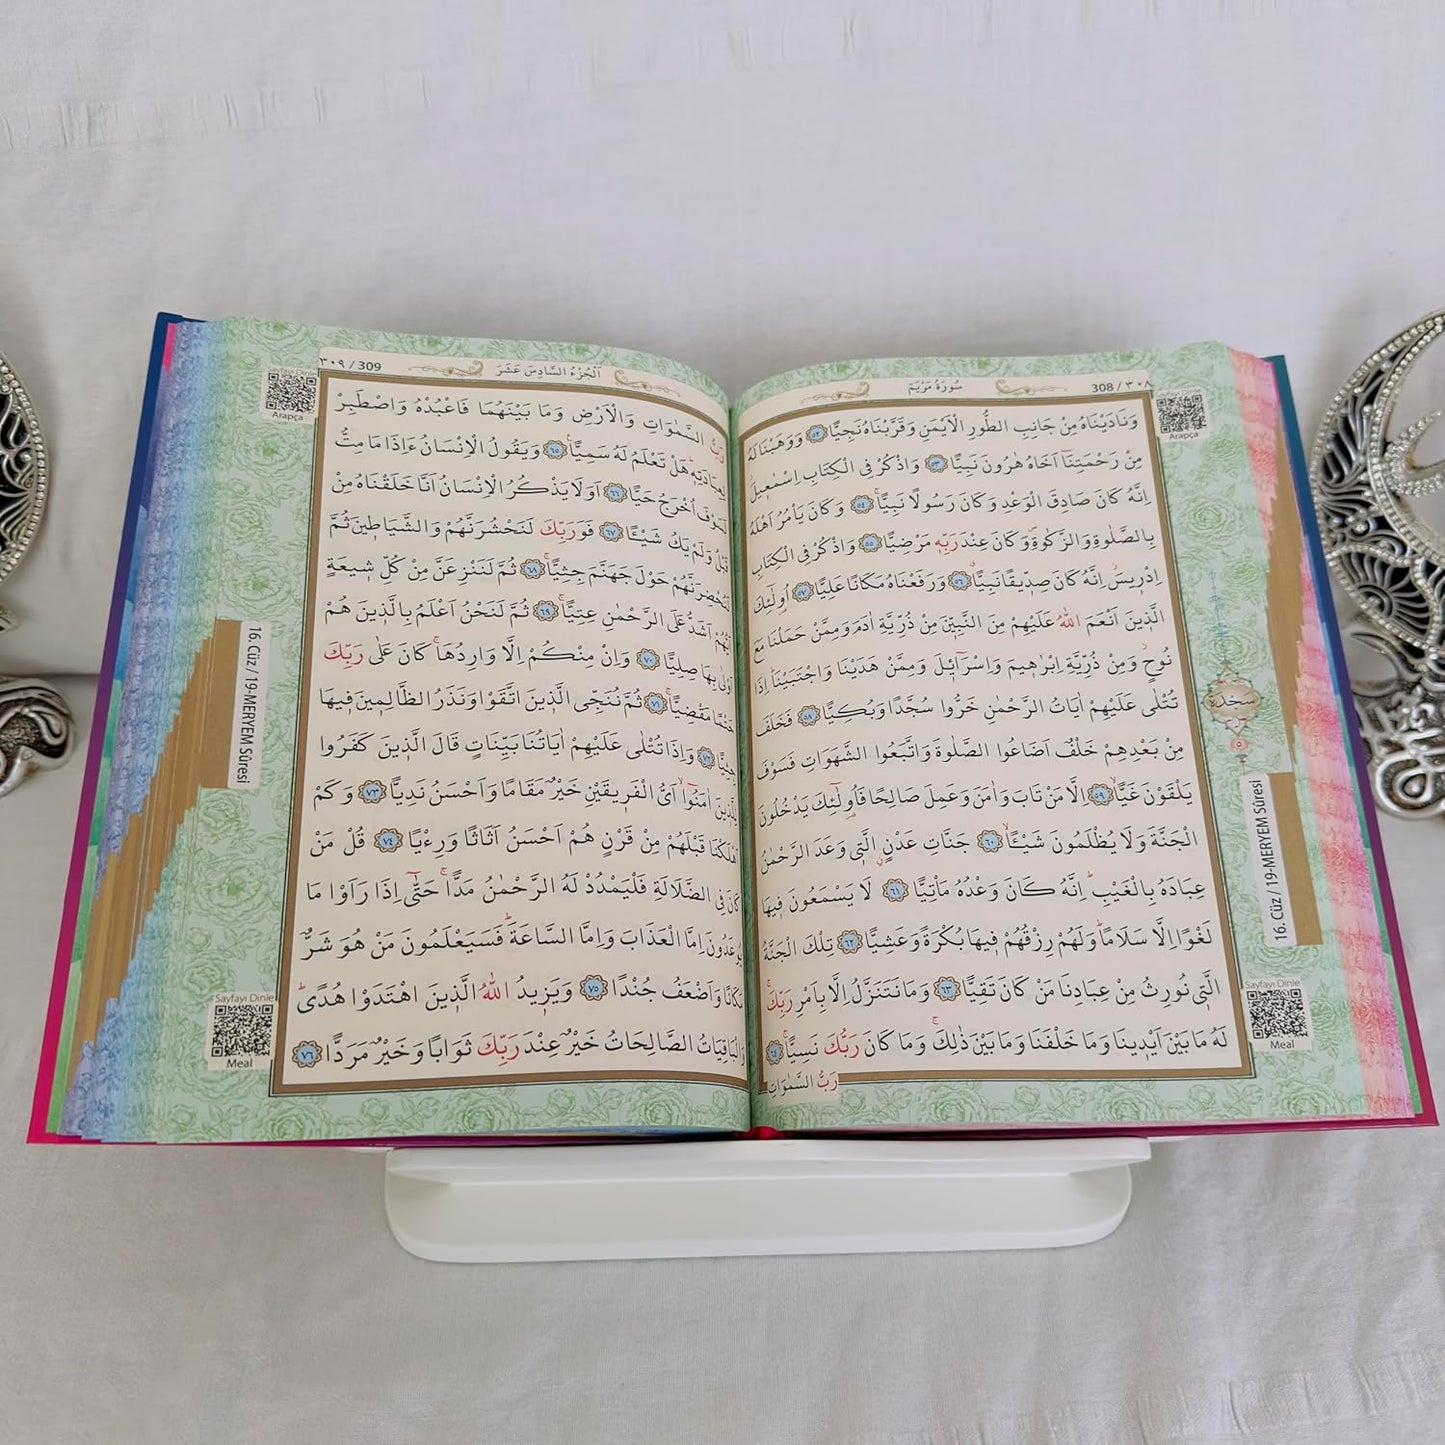 سُورَةُ مَرْيَمَ
308 / ٣٠٨
Arapça
وَنَادَيْنَاهُ مِنْ جَانِبِ الطُّورِ الْاَيْمَنِ وَقَرَّبْنَاهُ نَجِيًّا ﴿٥٢﴾ وَوَهَبْنَا لَهُ
مِنْ رَحْمَتِنَٓا اَخَاهُ هٰرُونَ نَبِيًّا ﴿٥٣﴾ وَاذْكُرْ فِي الْكِتَابِ اِسْمٰعٖيلَۘ
اِنَّهُ كَانَ صَادِقَ الْوَعْدِ وَكَانَ رَسُولًا نَبِيًّاۚ ﴿٥٤﴾ وَكَانَ يَأْمُرُ اَهْلَهُ
بِالصَّلٰوةِ وَالزَّكٰوةِࣕ وَكَانَ عِنْدَ رَبِّهٖ مَرْضِيًّا ﴿٥٥﴾ وَاذْكُرْ فِي الْكِتَابِ
اِدْرٖيسَۘ اِنَّهُ كَانَ صِدّٖيقًا نَبِيًّاۗ ﴿٥٦﴾ وَرَفَعْنَاهُ مَكَانًا عَلِيًّا ﴿٥٧﴾ اُو۬لٰٓئِكَ
الَّذٖينَ اَنْعَمَ اللّٰهُ عَلَيْهِمْ مِنَ النَّبِيّٖنَ مِنْ ذُرِّيَّةِ اٰدَمَ وَمِمَّنْ حَمَلْنَا مَعَ
نُوحٍۘ وَمِنْ ذُرِّيَّةِ اِبْرٰهٖيمَ وَاِسْرَٓاءٖيلَ وَمِمَّنْ هَدَيْنَا وَاجْتَبَيْنَاۜ اِذَا
تُتْلٰى عَلَيْهِمْ اٰيَاتُ الرَّحْمٰنِ خَرُّوا سُجَّدًا وَبُكِيًّا ﴿٥٨﴾ فَخَلَفَ
مِنْ بَعْدِهِمْ خَلْفٌ اَضَاعُوا الصَّلٰوةَ وَاتَّبَعُوا الشَّهَوَاتِ فَسَوْفَ
يَلْقَوْنَ غَيًّاۙ ﴿٥٩﴾ اِلَّا مَنْ تَابَ وَاٰمَنَ وَعَمِلَ صَالِحًا فَاُو۬لٰٓئِكَ يَدْخُلُونَ
الْجَنَّةَ وَلَا يُظْلَمُونَ شَيْـًٔاۙ ﴿٦٠﴾ جَنَّاتِ عَدْنٍۨ الَّتٖي وَعَدَ الرَّحْمٰنُ
عِبَادَهُ بِالْغَيْبِۜ اِنَّهُ كَانَ وَعْدُهُ مَأْتِيًّا ﴿٦١﴾ لَا يَسْمَعُونَ فٖيهَا
لَغْوًا اِلَّا سَلَامًاۜ وَلَهُمْ رِزْقُهُمْ فٖيهَا بُكْرَةً وَعَشِيًّا ﴿٦٢﴾ تِلْكَ الْجَنَّةُ
الَّتٖي نُورِثُ مِنْ عِبَادِنَا مَنْ كَانَ تَقِيًّا ﴿٦٣﴾ وَمَا نَتَنَزَّلُ اِلَّا بِاَمْرِ رَبِّكَۚ
لَهُ مَا بَيْنَ اَيْدٖينَا وَمَا خَلْفَنَا وَمَا بَيْنَ ذٰلِكَۚ وَمَا كَانَ رَبُّكَ نَسِيًّاۚ ﴿٦٤﴾
رَبُّ السَّمٰوَاتِ
سجده
16.Cüz / 19-MERYEM Sûresi
Sayfayı Dinle
Meal
٣٠٩ / 309
اَلْجُزْءُ السَّادِسَ عَشَرَ
Sayfayı Dinle
Arapça
رَبُّ السَّمٰوَاتِ وَالْاَرْضِ وَمَا بَيْنَهُمَا فَاعْبُدْهُ وَاصْطَبِرْ
لِعِبَادَتِهٖۜ هَلْ تَعْلَمُ لَهُ سَمِيًّاۚ ﴿٦٥﴾ وَيَقُولُ الْاِنْسَانُ ءَاِذَا مَا مِتُّ
لَسَوْفَ اُخْرَجُ حَيًّا ﴿٦٦﴾ اَوَلَا يَذْكُرُ الْاِنْسَانُ اَنَّا خَلَقْنَاهُ مِنْ
قَبْلُ وَلَمْ يَكُ شَيْـًٔا ﴿٦٧﴾ فَوَرَبِّكَ لَنَحْشُرَنَّهُمْ وَالشَّيَاطٖينَ ثُمَّ
لَنُحْضِرَنَّهُمْ حَوْلَ جَهَنَّمَ جِثِيًّاۚ ﴿٦٨﴾ ثُمَّ لَنَنْزِعَنَّ مِنْ كُلِّ شٖيعَةٍ
اَيُّهُمْ اَشَدُّ عَلَى الرَّحْمٰنِ عِتِيًّاۚ ﴿٦٩﴾ ثُمَّ لَنَحْنُ اَعْلَمُ بِالَّذٖينَ هُمْ
اَوْلٰى بِهَا صِلِيًّا ﴿٧٠﴾ وَاِنْ مِنْكُمْ اِلَّا وَارِدُهَاۚ كَانَ عَلٰى رَبِّكَ
حَتْمًا مَقْضِيًّاۚ ﴿٧١﴾ ثُمَّ نُنَجِّي الَّذٖينَ اتَّقَوْا وَنَذَرُ الظَّالِمٖينَ فٖيهَا
جِثِيًّا ﴿٧٢﴾ وَاِذَا تُتْلٰى عَلَيْهِمْ اٰيَاتُنَا بَيِّنَاتٍ قَالَ الَّذٖينَ كَفَرُوا
لِلَّذٖينَ اٰمَنُٓواۙ اَيُّ الْفَرٖيقَيْنِ خَيْرٌ مَقَامًا وَاَحْسَنُ نَدِيًّا ﴿٧٣﴾ وَكَمْ
اَهْلَكْنَا قَبْلَهُمْ مِنْ قَرْنٍ هُمْ اَحْسَنُ اَثَاثًا وَرِءْيًا ﴿٧٤﴾ قُلْ مَنْ
كَانَ فِي الضَّلَالَةِ فَلْيَمْدُدْ لَهُ الرَّحْمٰنُ مَدًّاۚ حَتّٰٓى اِذَا رَاَوْا مَا
يُوعَدُونَ اِمَّا الْعَذَابَ وَاِمَّا السَّاعَةَۜ فَسَيَعْلَمُونَ مَنْ هُوَ شَرٌّ
مَكَانًا وَاَضْعَفُ جُنْدًا ﴿٧٥﴾ وَيَزٖيدُ اللّٰهُ الَّذٖينَ اهْتَدَوْا هُدًىۜ
وَالْبَاقِيَاتُ الصَّالِحَاتُ خَيْرٌ عِنْدَ رَبِّكَ ثَوَابًا وَخَيْرٌ مَرَدًّا ﴿٧٦﴾
16.Cüz / 19-MERYEM Sûresi
Sayfayı Dinle
Meal